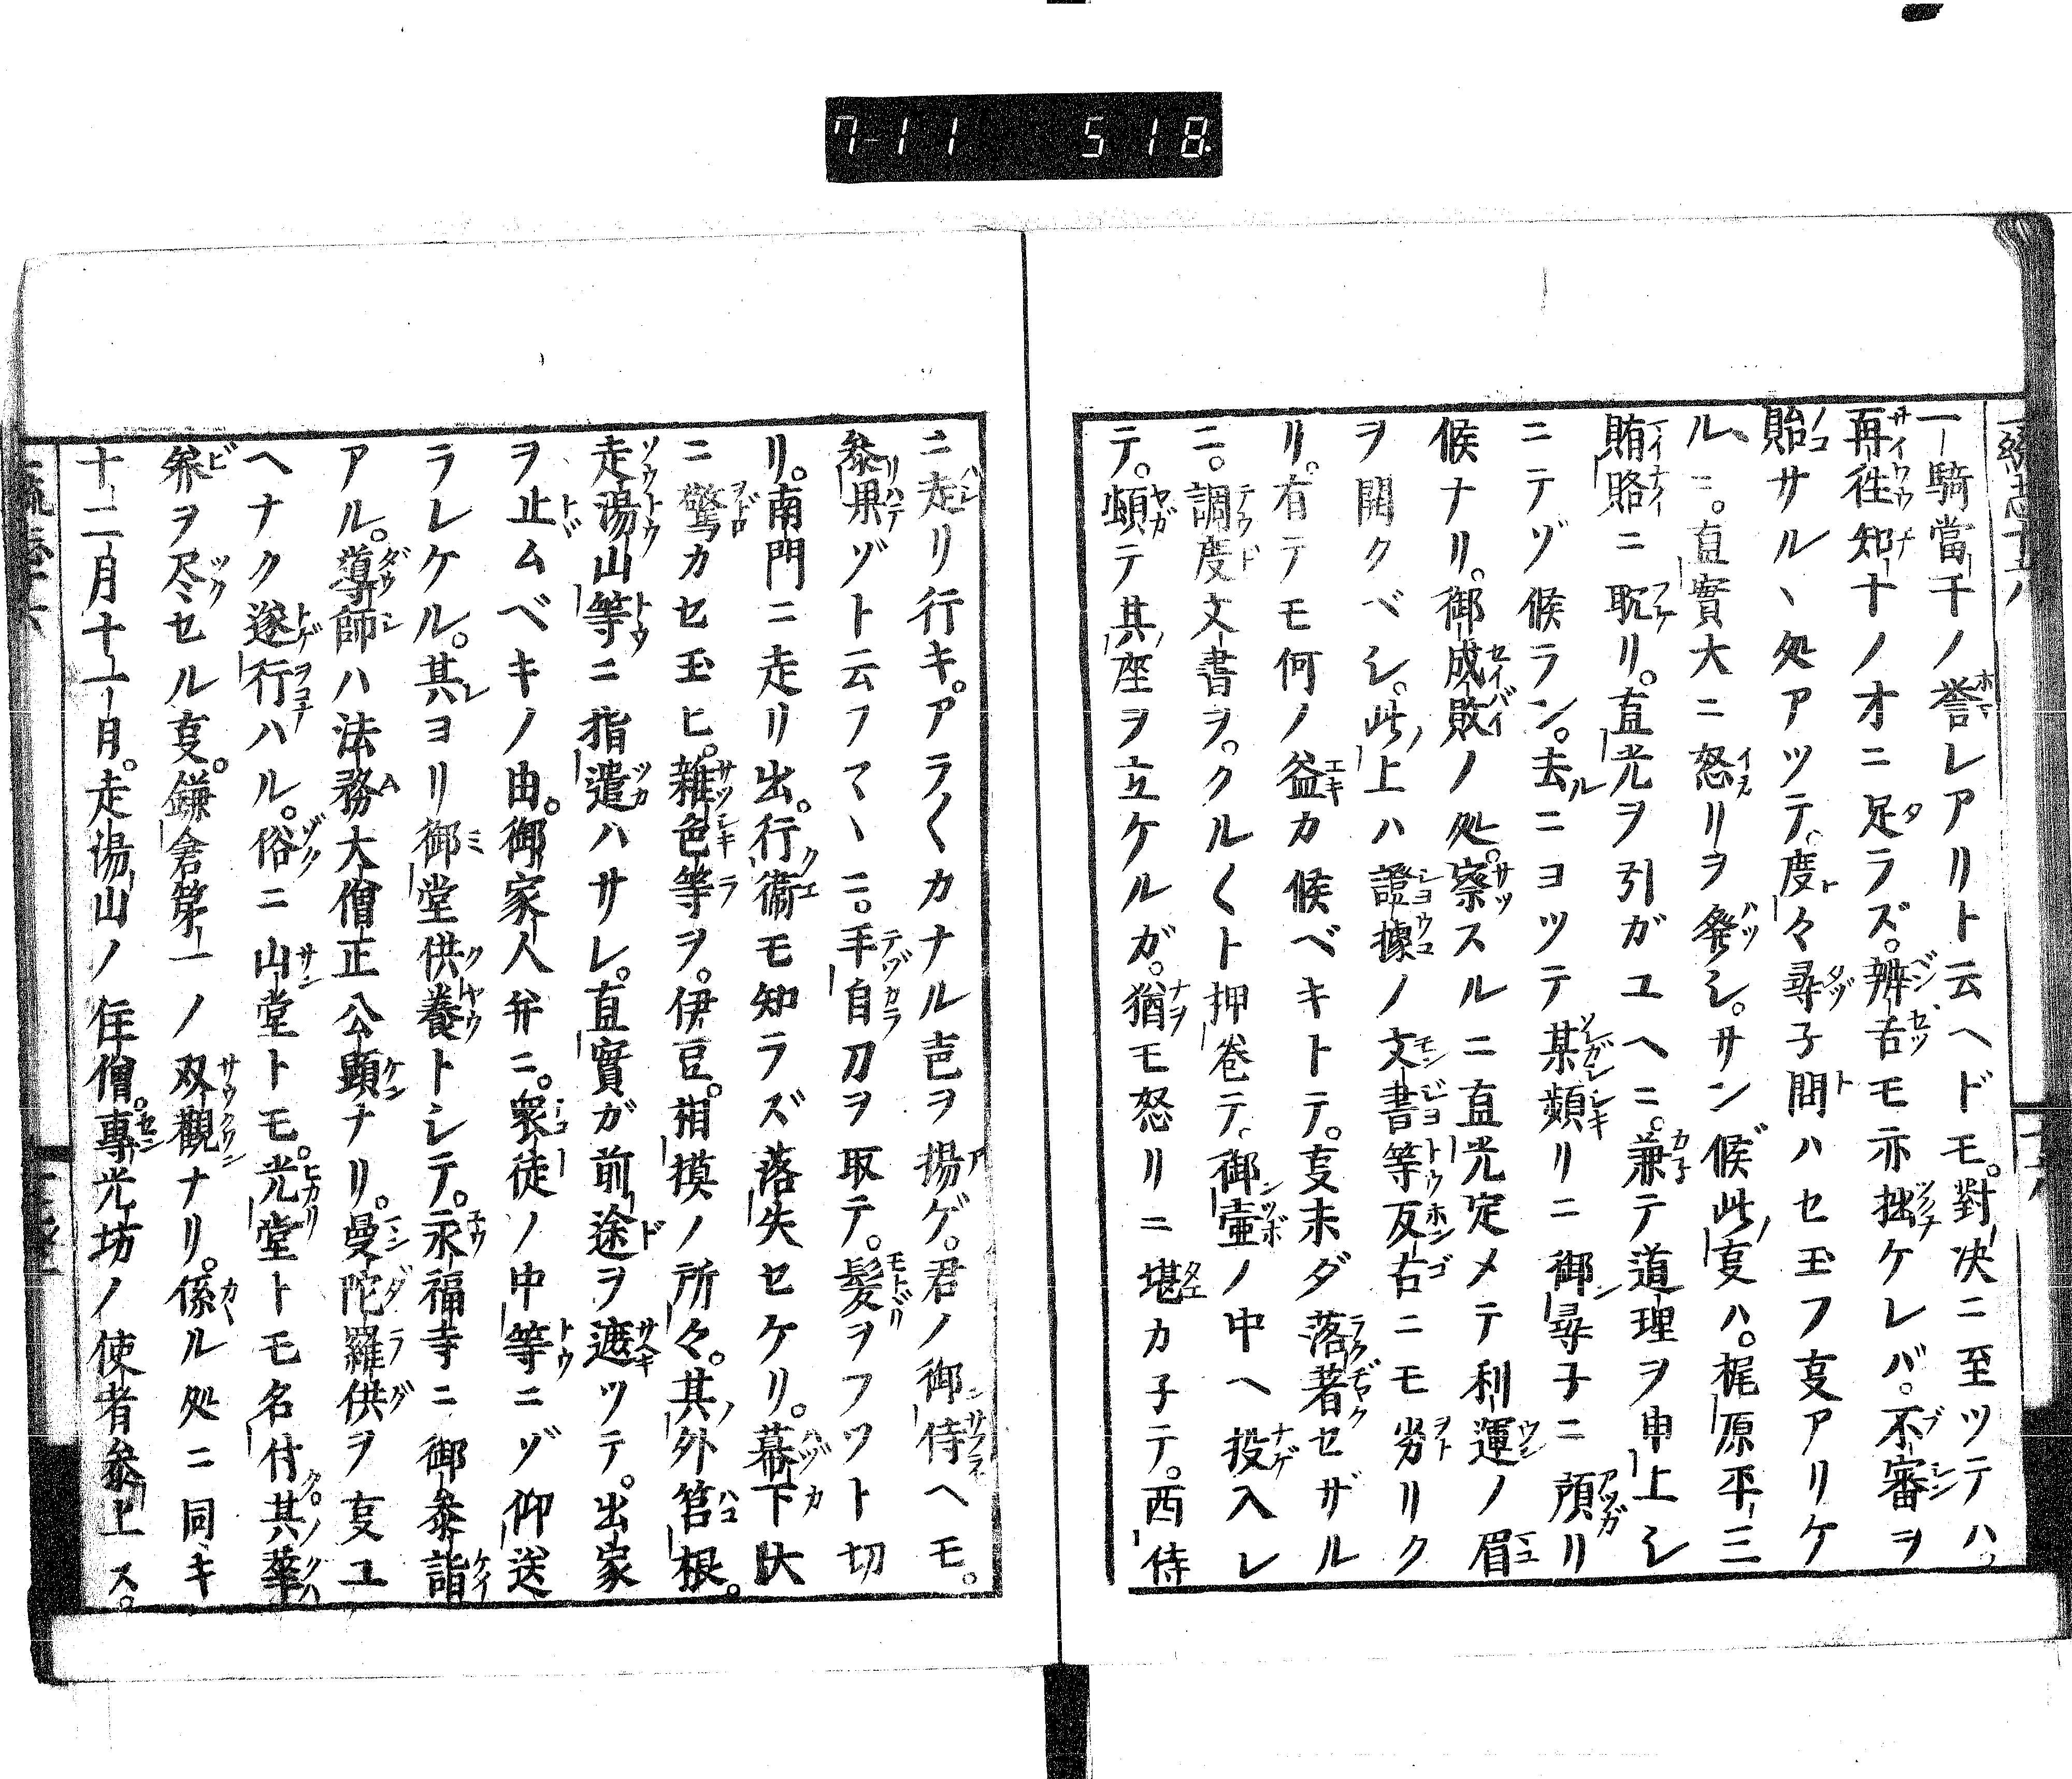 7-11 518
一騎當千ノ誉レアリト云ヘドモ。對决ニ至ツテハ。
再徃知十ノオニ足ラズ。辨舌モ亦拙ケレバ。不審ヲ
貽サルヽ処アツテ。度々尋子問ハセ玉フ叓アリケ
ルニ。直實大ニ怒リヲ発シ。サン候此叓ハ。梶原平三
賄賂ニ耽リ。直光ヲ引ガユヘニ。兼テ道理ヲ申上シ
ニテゾ候ラン。去ニヨツテ某頻リニ御尋子ニ預リ
候ナリ。御成敗ノ処。察スルニ直光定メテ利運ノ眉
ヲ開クベシ。此上ハ證據ノ文書等反古ニモ劣リク
リ。有テモ何ノ益カ候ベキトテ。叓未ダ落著セザル
ニ。調度文書ヲ。クル〱ト押巻テ。御壷ノ中ヘ投入レ
テ。頓テ其座ヲ立ケルガ。猶モ怒リニ堪カ子テ。西侍
ニ走リ行キ。アラ〱カナル㐵ヲ揚ゲ。君ノ御侍ヘモ。
参果ゾト云フマヽニ。手自刀ヲ取テ。髪ヲフツト切
リ。南門ニ走リ出。行衞モ知ラズ落失セケリ。幕下大
ニ驚カセ玉ヒ。雜色等ヲ。伊豆。相摸ノ所々。其外筥根。
走湯山等ニ指遣ハサレ。直實ガ前途ヲ遮ツテ。出家
ヲ止ムベキノ由。御家人并ニ。衆徒ノ中等ニゾ仰送
ラレケル。其ヨリ御堂供養トシテ。永福寺ニ御参詣
アル。導師ハ法務大僧正公顕ナリ。曼陀羅供ヲ叓ユ
ヘナク遂行ハル。俗ニ山堂トモ。光堂トモ名付其華
飾ヲ尽セル叓。鎌倉第一ノ双觀ナリ。係ル処ニ同キ
十二月十一日。走湯山ノ住僧。專光坊ノ使者参上ス。